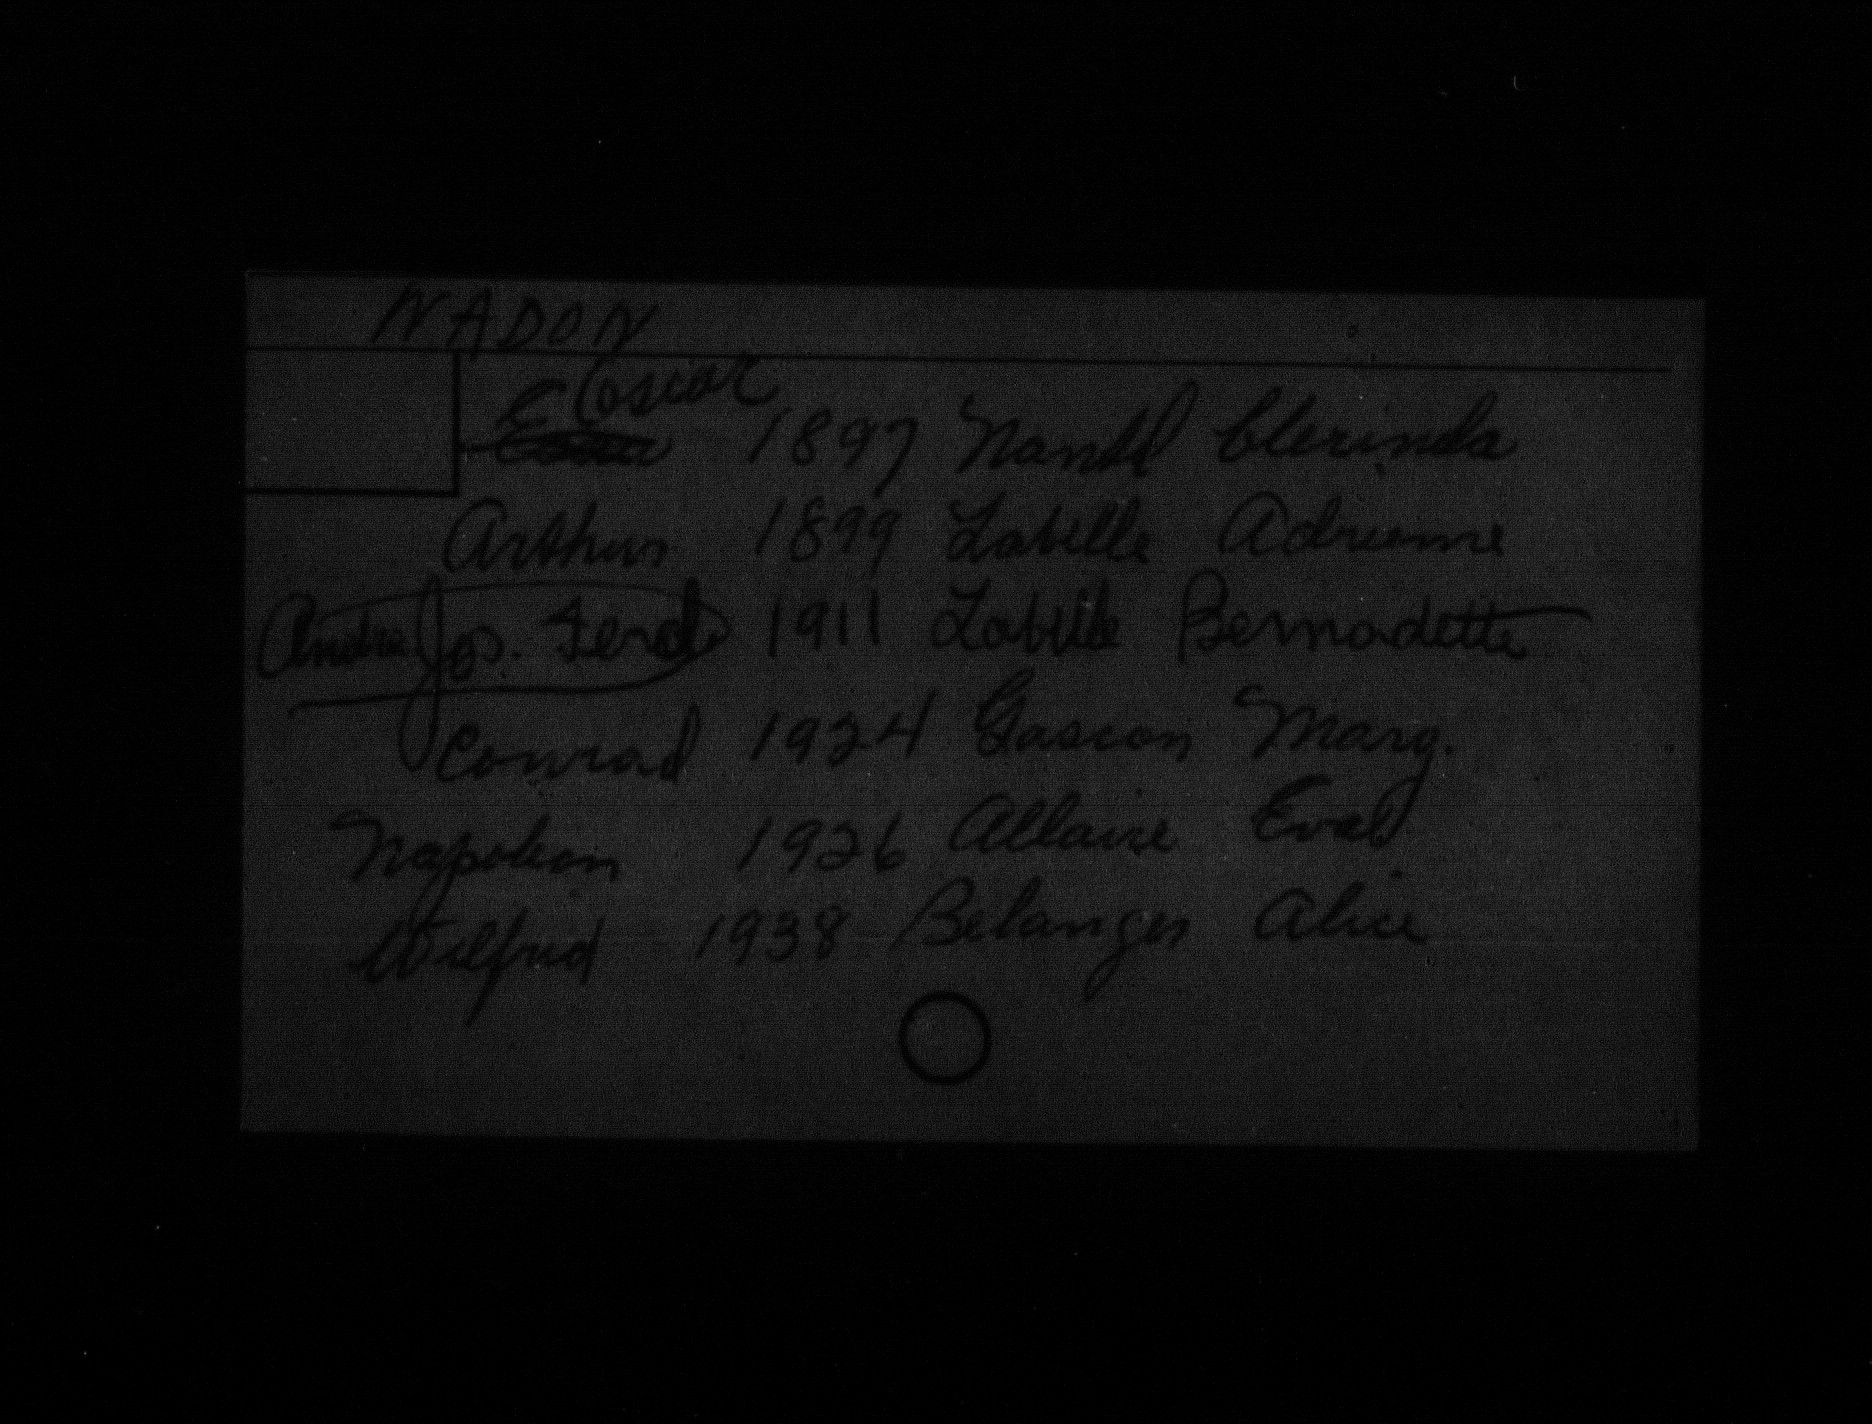 NADON
E Cosior
1897 Nantel Clerinda
Arthur 1899 Labelle Adrienne
Andre Jos. Ferd 1911 Labelle Bernadette
Conrad 1924 Gascon Marg.
Napoleon 1926 Allaire Eva
Wilfrid 1938 Belanger Alice